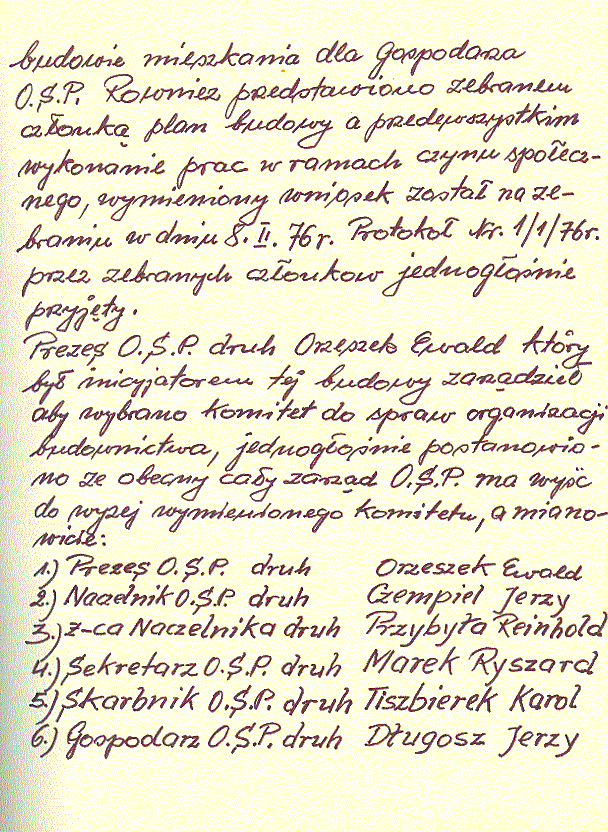 budowie mieszkania dla Gospodarza
O.S.P. Rowniez przedstawiono zebranem
członką plan budowy a przedewszystkim
wykonanie prac w ramach czynu społecz-
nego, wymieniony wniosek został na ze-
braniu w dniu 8. II. 76 r. Protokoł Nr. 1/1/76r.
przez zebranych członkow jednogłośnie
przyjęty.
Prezes O.S.P. druh Orzeszek Ewald który
był inicyjatorem tej budowy zarządził
aby wybrano Komitet do spraw organizacji
budownictwa, jednogłośnie postanowio-
no ze obecny cały zarząd O.S.P. ma wyjść
do wyzej wymienionego Komitetu, a miano-
wicie:
1.) Prezes O.S.P. druh Orzeszek Ewald
2.) Naczelnik O.S.P. druh Czempiel Jerzy
3.) z-ca Naczelnika druh Przybyła Reinhold
4.) Sekretarz O.S.P. druh Marek Ryszard
5.) Skarbnik O.S.P. druh Tiszbierek Karol
6.) Gospodarz O.S.P. druh Długosz Jerzy